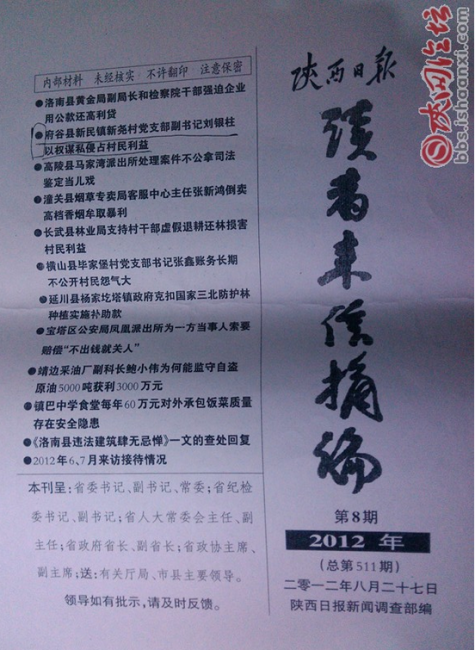 陕网论坛
bbs.ishaanxi.com
内部材料 未经核实 不许翻印 注意保密
●洛南县黄金局副局长和检察院干部强迫企业
用公款还高利贷
●府谷县新民镇新尧村党支部副书记刘银柱
以权谋私侵占村民利益
●高陵县马家湾派出所处理案件不公拿司法
鉴定当儿戏
●潼关县烟草专卖局客服中心主任张新鸿倒卖
高档香烟牟取暴利
●长武县林业局支持村干部虚假退耕还林损害
村民利益
●横山县毕家堡村党支部书记张鑫账务长期
不公开村民怨气大
●延川县杨家圪塔镇政府克扣国家三北防护林
种植实施补助款
●宝塔区公安局凤凰派出所为一方当事人索要
赔偿“不出钱就关人”
●靖边采油厂副科长鲍小伟为何能监守自盗
原油5000吨获利3000万元
●镇巴中学食堂每年60万元对外承包饭菜质量
存在安全隐患
●《洛南县违法建筑肆无忌惮》一文的查处回复
●2012年6、7月来访接待情况
本刊呈:省委书记、副书记、常委;省纪检
委书记、副书记;省人大常委会主任、副
主任;省政府省长、副省长;省政协主席、
副主席;送:有关厅局、市县主要领导。
领导如有批示,请及时反馈。
陕西日报
读者来信摘编
第8期
2012 年
(总第511期)
二〇一二年八月二十七日
陕西日报新闻调查部编